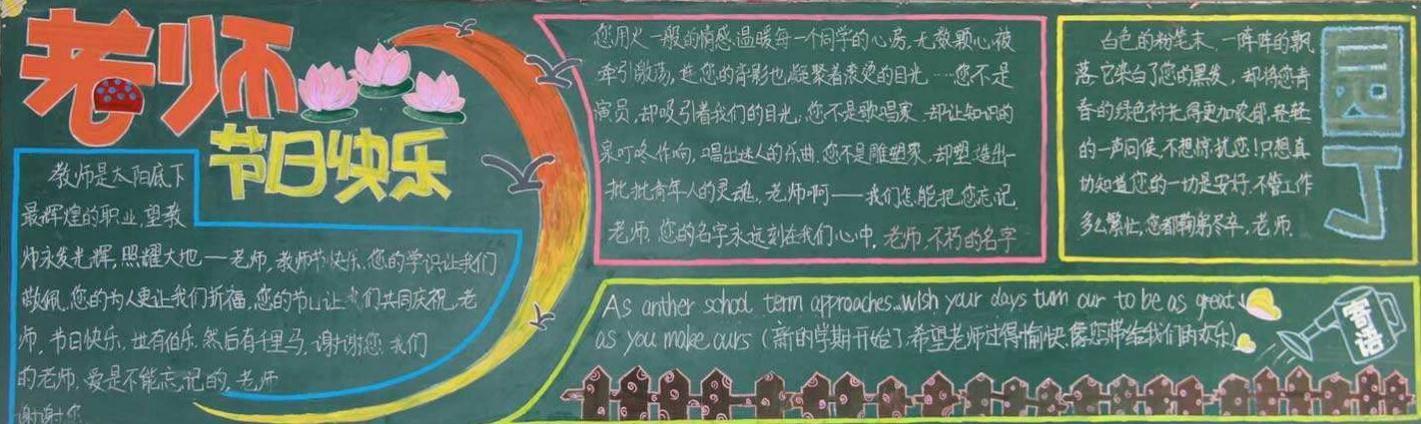 老师
节日快乐
教师是太阳底下
最辉煌的职业,望教
师永发光辉,照耀大地——老师,教师节快乐.您的学识让我们
敬佩,您的为人更让我们折福,您的节日让我们共同庆祝,老
师,节日快乐.世有伯乐.然后有千里马,谢谢您.我们
的老师.爱是不能忘记的,老师
谢谢您
您用火一般的情感温暖每一个同学的心房,无数颗心被
牵引激荡,连您的背影也凝聚着滚烫的目光……您不是
演员,却吸引着我们的目光;您不是歌唱家.却让知识的
泉叮咚作响,唱出迷人的乐曲,您不是雕塑家,却塑造出一
批批青年人的灵魂,老师啊——我们怎能把您忘记.
老师.您的名字永远刻在我们心中,老师.不朽的名字
白色的粉笔末,一阵阵的飘
落,它染白了您的黑发,却将您青
春的绿色衬托得更加浓郁,轻轻
的一声问候,不想惊扰您!只想真
切知道您的一切是安好,不管工作
多么繁忙,您都鞠躬尽卒,老师.
园丁
As anther school term approaches..wish your days turn our to be as great
as you make ours (新的学期开始了,希望老师过得愉快,像您带给我们的欢乐)
寄语